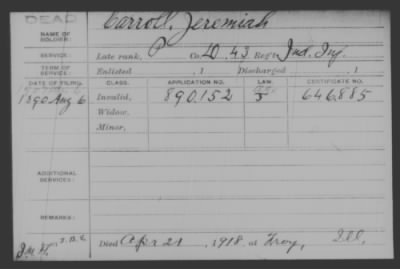 DEAD
NAME OF SOLDIER: Carroll, Jeremiah
SERVICE: Late rank, P Co. D. 43 Reg't Ind. Inf.
TERM OF SERVICE: Enlisted , 1 Discharged , 1
DATE OF FILING. CLASS. APPLICATION NO. LAW. CERTIFICATE NO.
1890 Aug 6 Invalid, 890.152 646.885
Widow,
Minor,
ADDITIONAL SERVICES:
REMARKS:
Died Apr 21, 1918. at Troy, Ill.